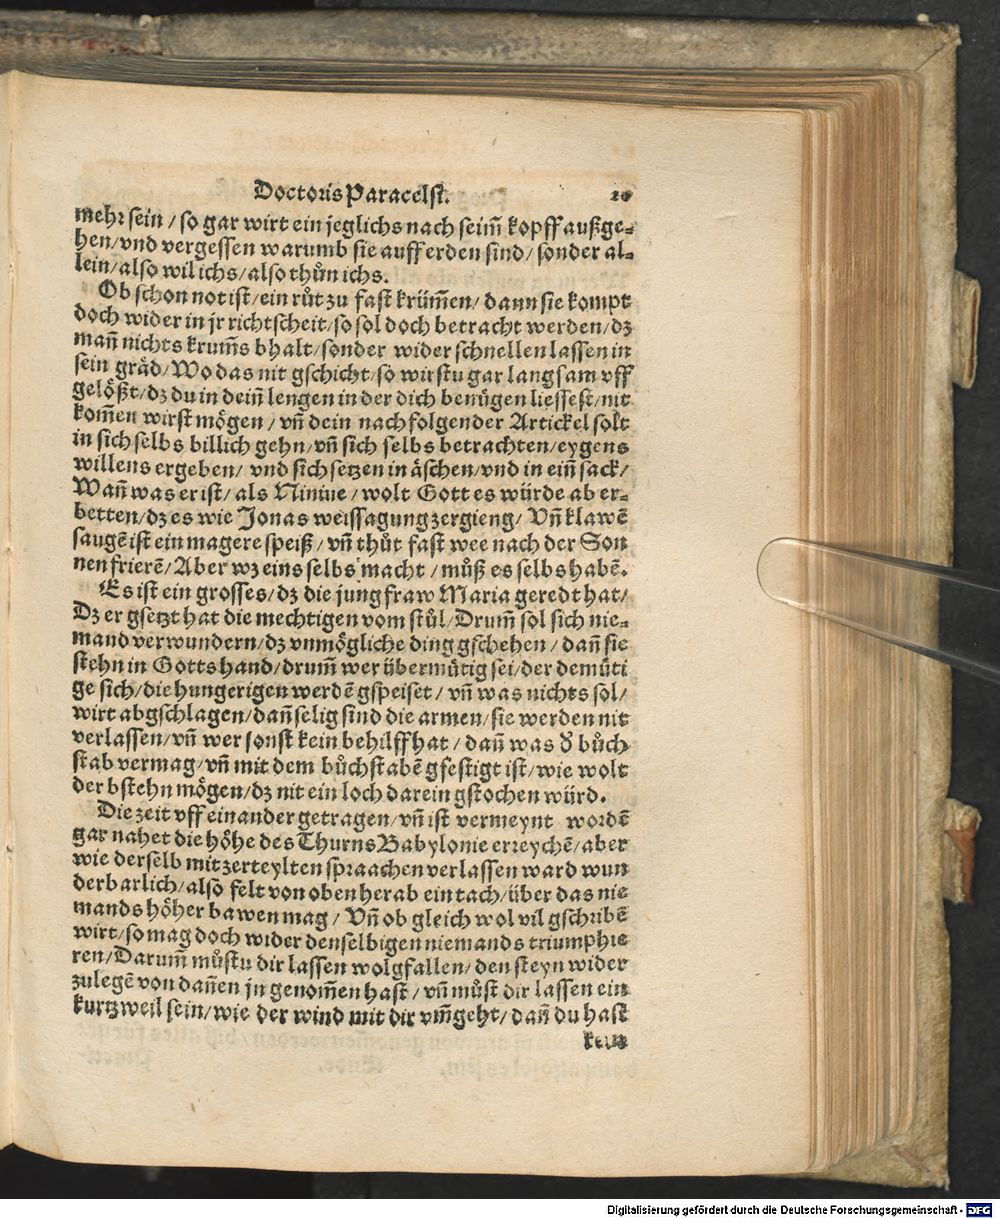 Doctoris Paracelsi. 20
mehr sein / so gar wirt ein jeglichs nach seim̃ kopff außge⸗
hen/vnd vergessen warumb sie auff erden sind/ sonder al⸗
lein/also wil ichs/also thůn ichs.
Ob schon not ist/ein růt zu fast krüm̃en/ dann sie kompt
doch wider in jr richtscheit/so sol doch betracht werden/dz
mañ nichts krum̃s bhalt/sonder wider schnellen lassen in
sein gräd/Wo das nit gschicht/so wirstu gar langsam vff
gelößt/dz du in deiñ lengen in der dich benügen liessest/nit
kom̃en wirst mögen / vñ dein nachfolgender Artickel solt
in sich selbs billich gehn/vñ sich selbs betrachten/eygens
willens ergeben/ vnd sich setzen in äschen/vnd in eiñ sack/
Wañ was er ist/ als Niniue / wolt Gott es würde ab er⸗
betten/dz es wie Jonas weissagung zergieng/ Vñ klawẽ
saugẽ ist ein magere speiß / vñ thůt fast wee nach der Son
nen frierẽ/Aber wz eins selbs macht / můß es selbs habẽ.
Es ist ein grosses/dz die jungfraw Maria geredt hat/
Dz er gsetzt hat die mechtigen vom stůl/Drum̃ sol sich nie⸗
mand verwundern/dz vnmögliche ding gschehen / dañ sie
stehn in Gotts hand/drum̃ wer übermůtig sei/der demůti
ge sich/die hungerigen werdẽ gspeiset / vñ was nichts sol/
wirt abgschlagen/dañ selig sind die armen/sie werden nit
verlassen/vñ wer sonst kein behilff hat / dañ was d̓ bůch
stab vermag/vñ mit dem bůchstabẽ gfestigt ist/wie wolt
der bstehn mögen/dz nit ein loch darein gstochen würd.
Die zeit vff einander getragen/vñ ist vermeynt wordẽ
gar nahet die höhe des Thurns Babylonie erreychẽ/aber
wie derselb mit zerteylten spraachen verlassen ward wun
derbarlich/also felt von oben herab ein tach/über das nie
mands höher bawen mag / Vñ ob gleich wol vil gschribẽ
wirt/so mag doch wider denselbigen niemands triumphie
ren/Darum̃ můstu dir lassen wolgfallen/den steyn wider
zulegẽ von dañen jn genom̃en hast / vñ můst dir lassen ein
kurtzweil sein/wie der wind mit dir vm̃geht/dañ du hast
kein
Digitalisierung gefördert durch die Deutsche Forschungsgemeinschaft - DFG